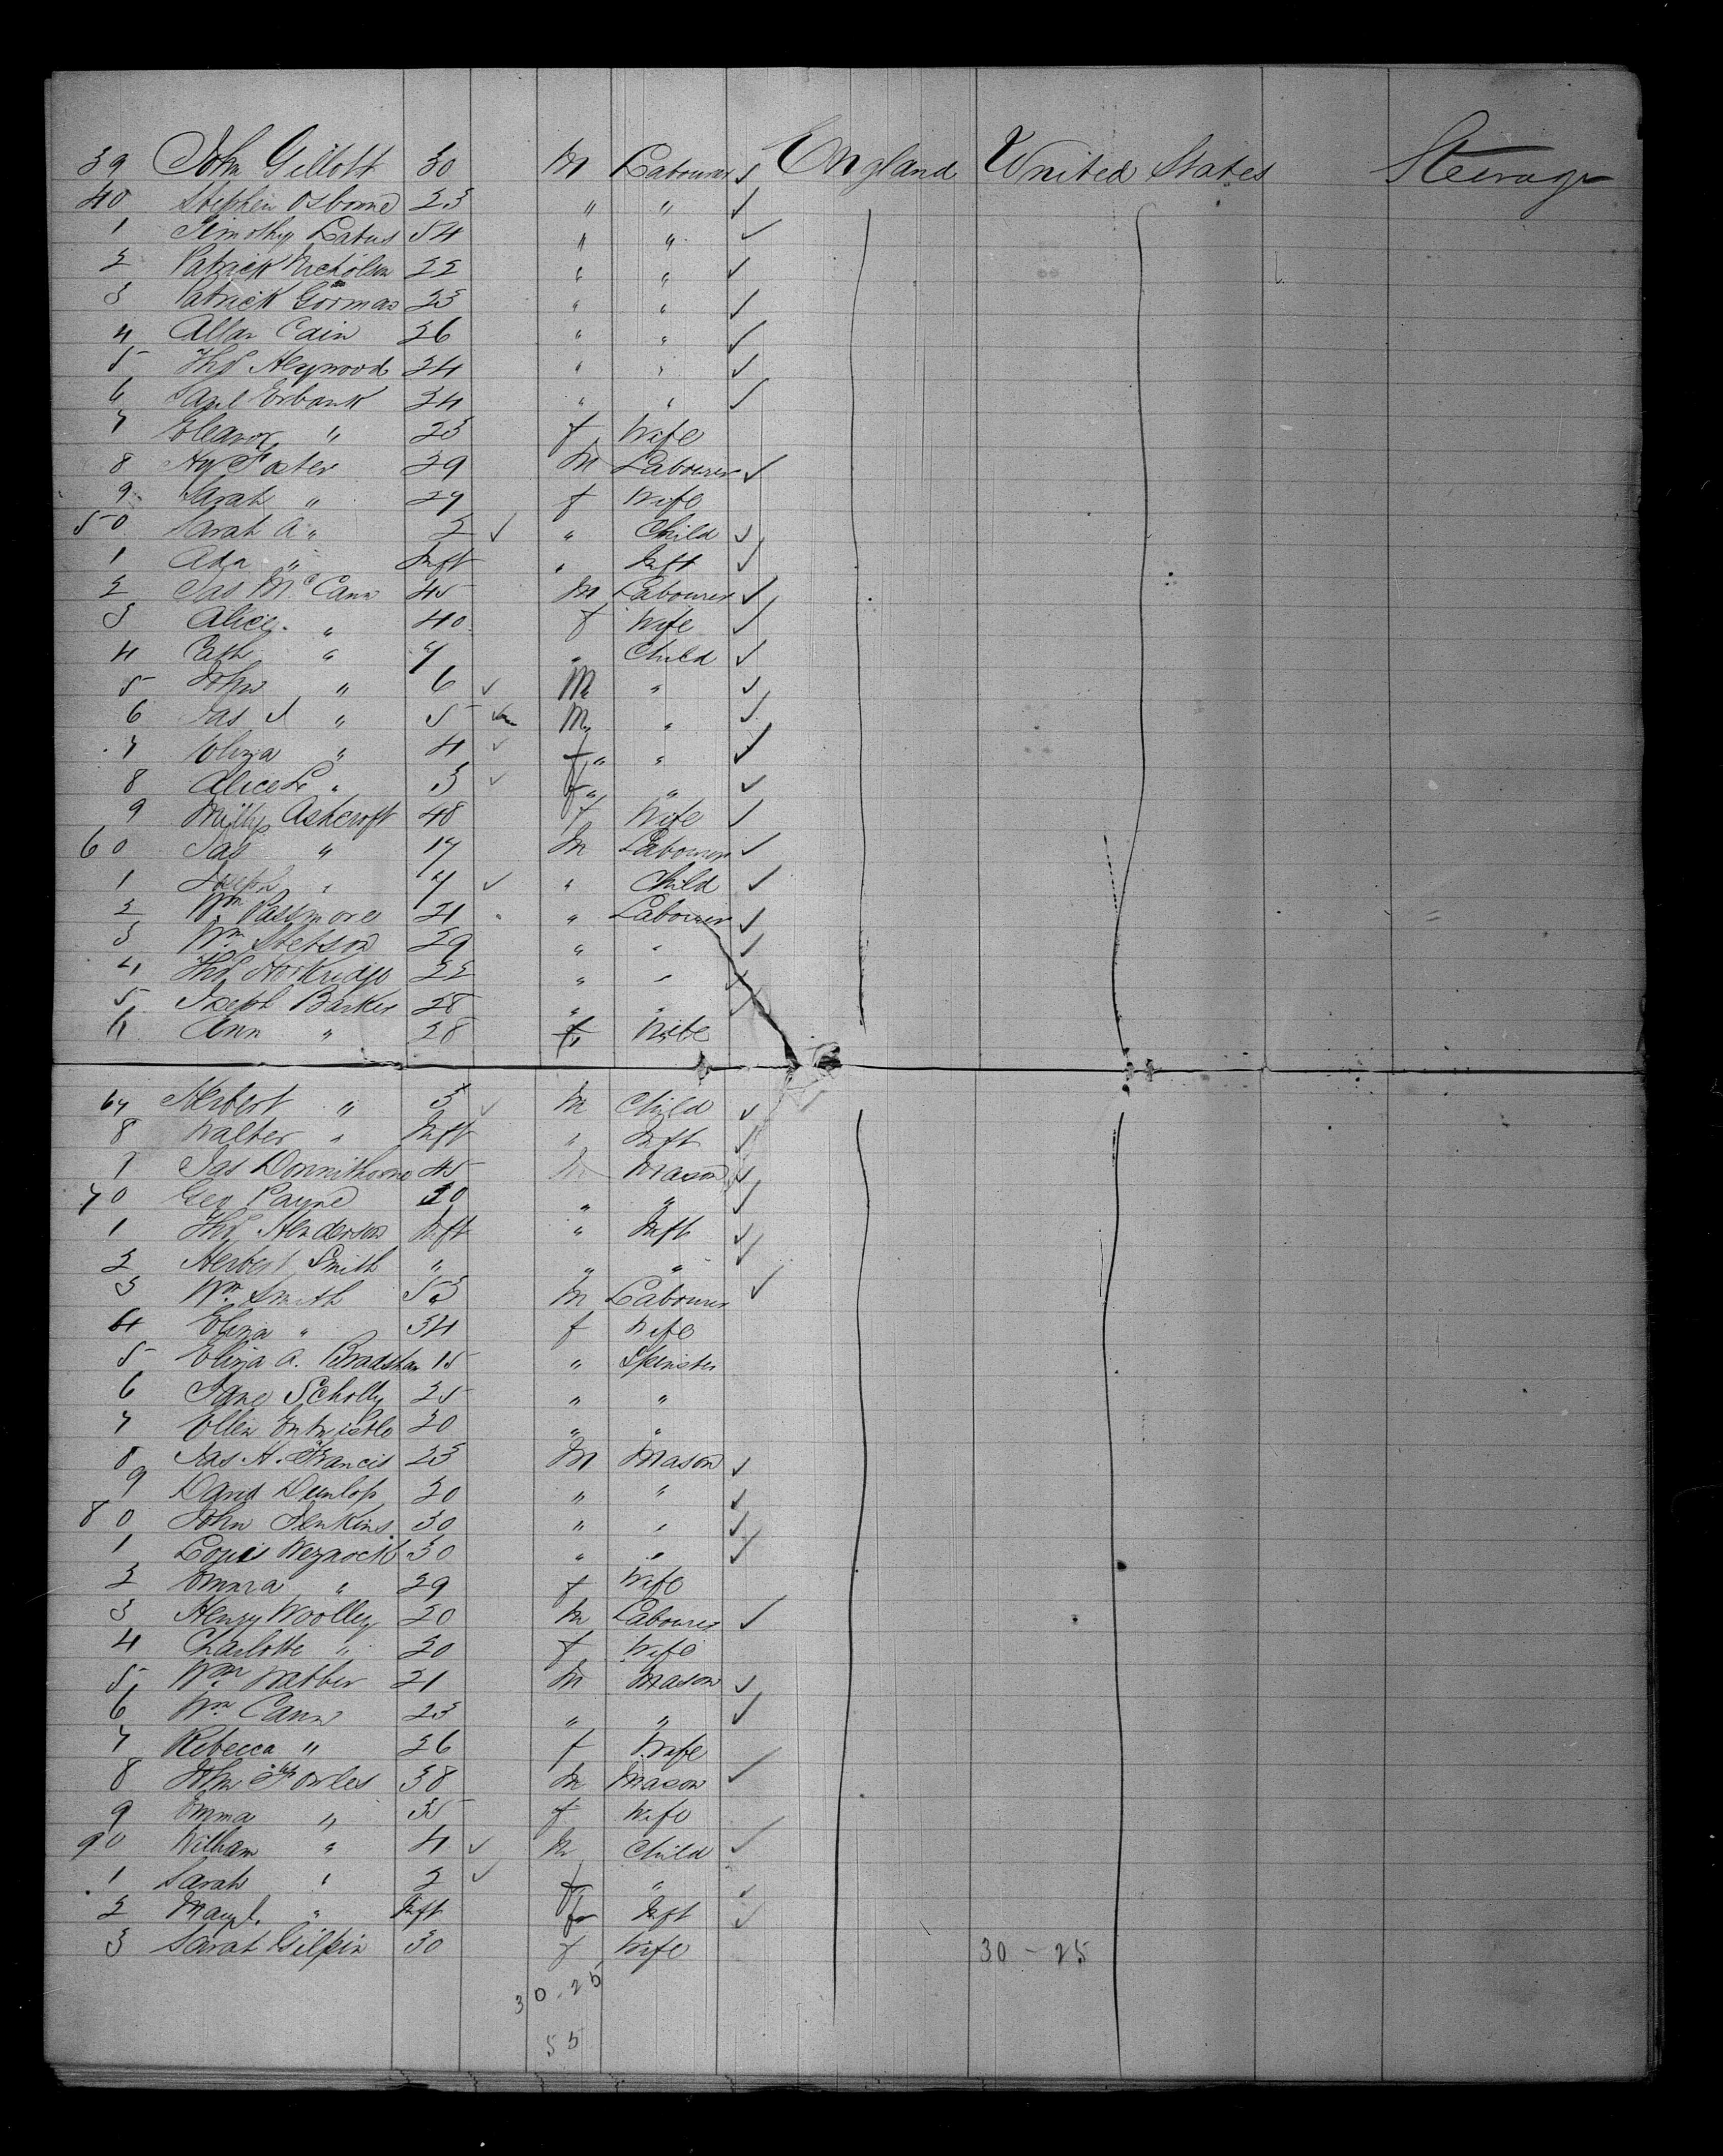 39 John Gillott 30 M Labourer England United States Steerage
40 Stephen Osborne 23 " "
1 Timothy Latus 54 " "
2 Patrick Nicholson 22 " "
3 Patrick Gorman 23 " "
4 Allan Cain 36 " "
5 Thos Heywood 34 " "
6 34 " "
7 Eleanor " 23 f Wife
8 Hy Foster 29 M Labourer
9 Sarah " 29 f Wife
50 Sarah A " 2 " Child
1 Ada " Inft " Inft
2 Jas McCann 45 M Labourer
3 Alice " 40 f Wife
4 Cath " 7 " Child
5 John " 6 M "
6 Jas J " 5 M "
7 Eliza " 4 f " "
8 Alice L " 3 f " "
9 Ashcroft 48 f Wife
60 Jas " 17 M Labourer
1 Joseph " 7 " Child
2 Wm Passmore 21 " Labourer
3 Wm Stetson 29 " "
4 Thos 22 " "
5 Joseph Barker 28 " "
6 Ann " 28 f Wife
67 Herbert " 3 M Child
8 Walter " Inft " Inft
9 Jas Donnithorne 45 M Mason
70 Geo Payne 30 " "
1 Thos Henderson Inft " Inft
2 Herbert Smith " " "
3 Wm Smith 53 M Labourer
4 Eliza " 34 f Wife
5 Eliza A. Bradshaw 15 " Spinster
6 Jane Scholly 25 " "
7 Ellen Entwistle 20 " "
8 Jas H. Francis 23 M Mason
9 David Dunlop 20 " "
80 John Jenkins 30 " "
1 Louis 30 " "
2 Emma " 29 f Wife
3 Henry Woolley 20 M Labourer
4 Charlotte " 20 f Wife
5 Wm Webber 21 M Mason
6 Wm Cann 23 " "
7 Rebecca " 26 f Wife
8 John Fowles 38 M Mason
9 Emma " 35 f Wife
90 William " 4 M Child
1 Sarah " 2 f "
2 " Inft f Inft
3 Sarah Gilpin 30 f Wife 30 - 25
30.25
55